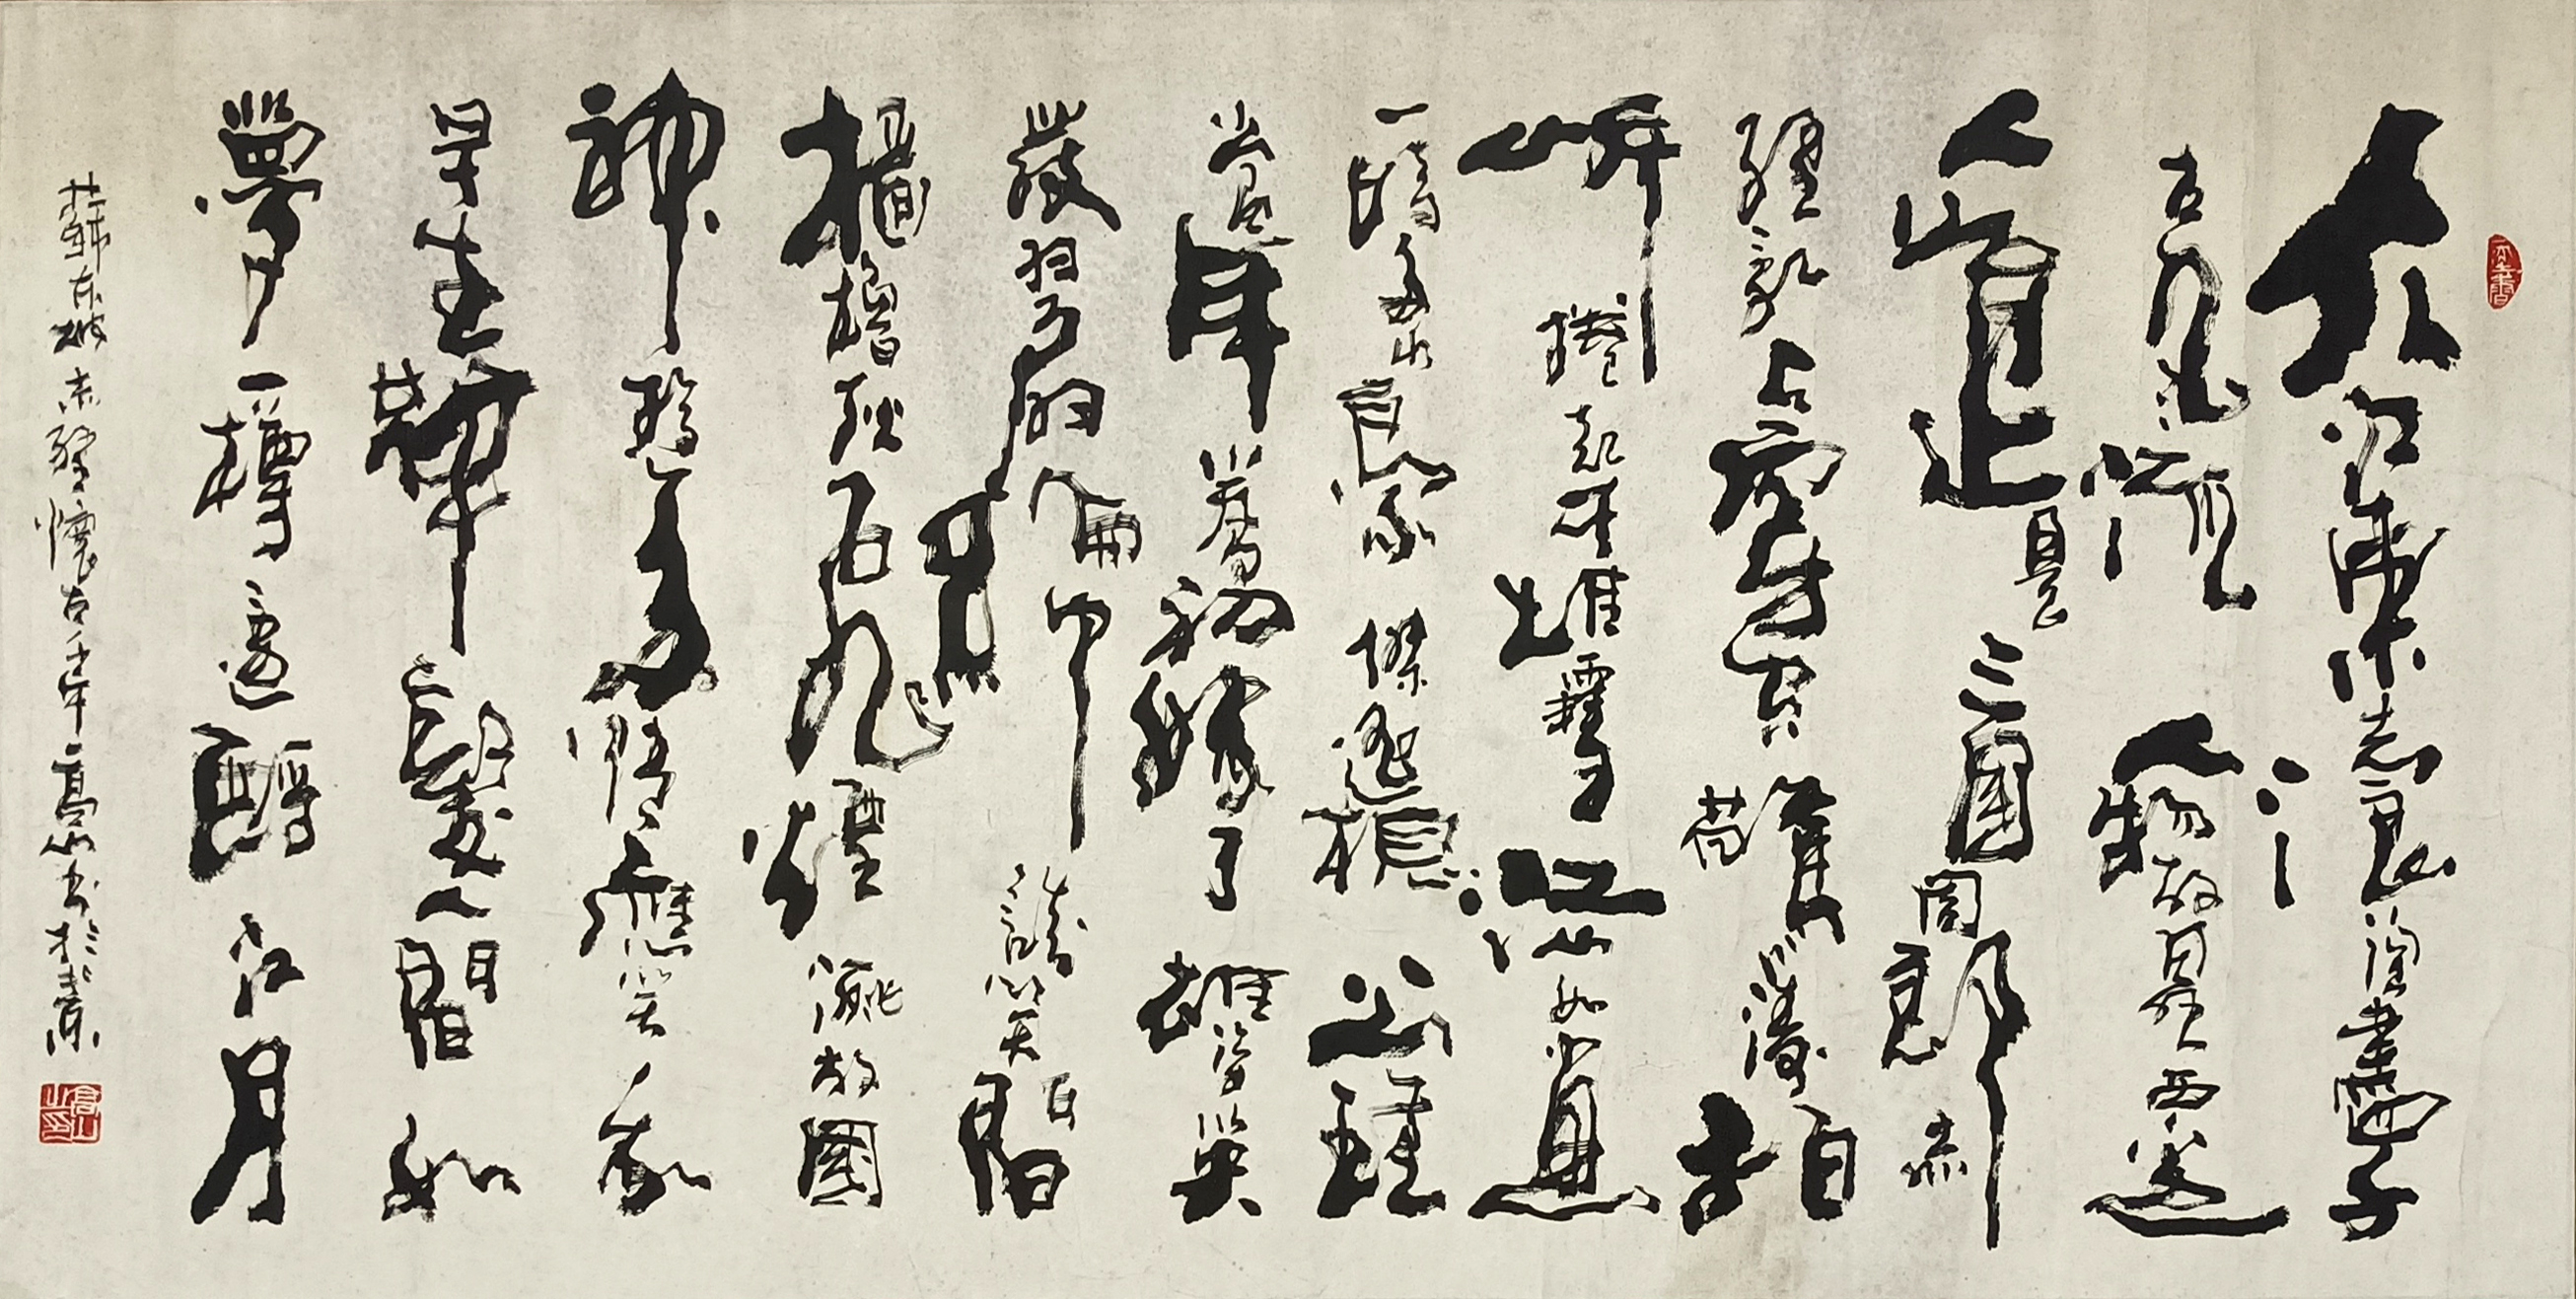 大江東去浪淘盡千
古風流人物故壘西邊
人道是三國周郎赤
壁亂石穿空驚濤拍
岸捲起千堆雪江山如畫
一時多少豪傑遙想公瑾
當年小喬初嫁了雄姿英
發羽扇綸巾談笑間
檣櫓灰飛煙滅故國
神遊多情應笑我
早生華髮人間如
夢一樽還酹江月
蘇東坡赤壁懷古壬午年高山書於京